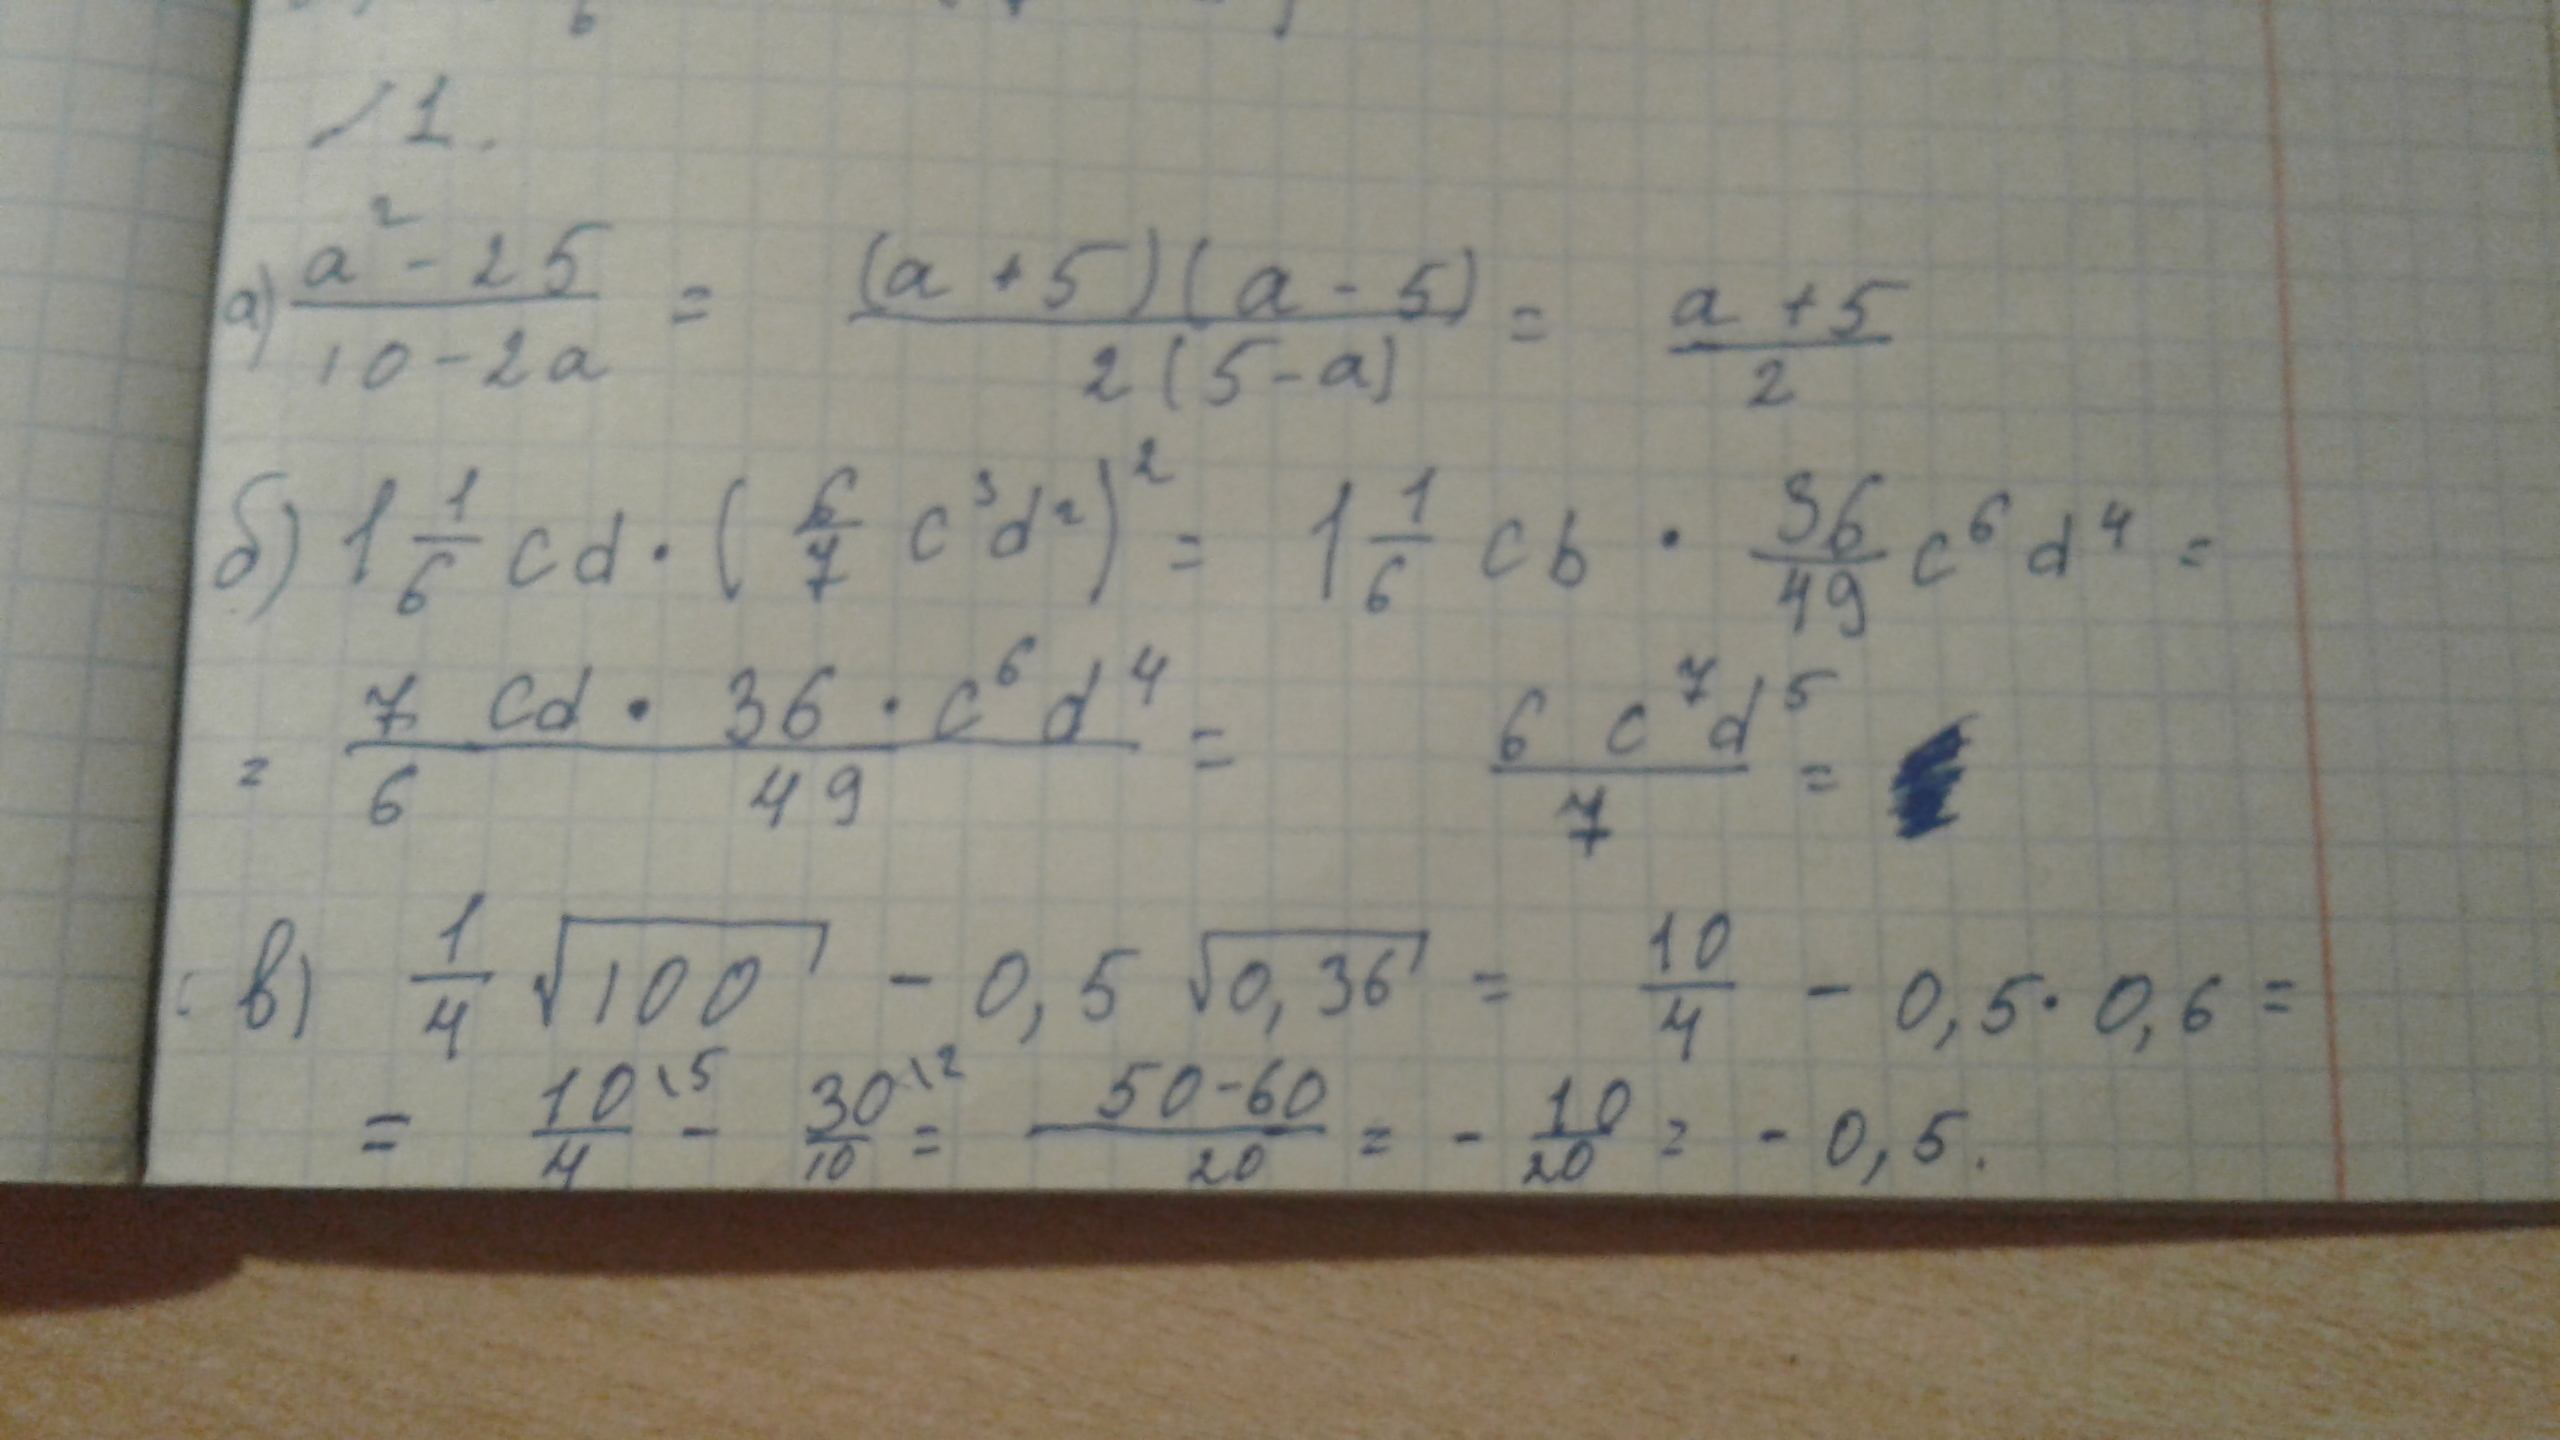 1.
а) a² - 25 / 10 - 2a = (a + 5)(a - 5) / 2(5 - a) = a + 5 / 2
б) 1 1/6 cd · (6/7 c³d²)² = 1 1/6 cb · 36/49 c⁶ d⁴ =
= 7 cd · 36 · c⁶ d⁴ / 6 49 = 6 c⁷d⁵ / 7 =
в) 1/4 √100 - 0,5 √0,36 = 10/4 - 0,5 · 0,6 =
= 10\5/4 - 30\2/10 = 50-60 / 20 = - 10/20 = - 0,5.